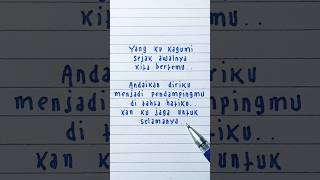 Yang ku kagumi
sejak awalnya
kita bertemu..
Andaikan diriku
menjadi pendampingmu
di tahta hatiku..
kan ku jaga untuk
selamanya..